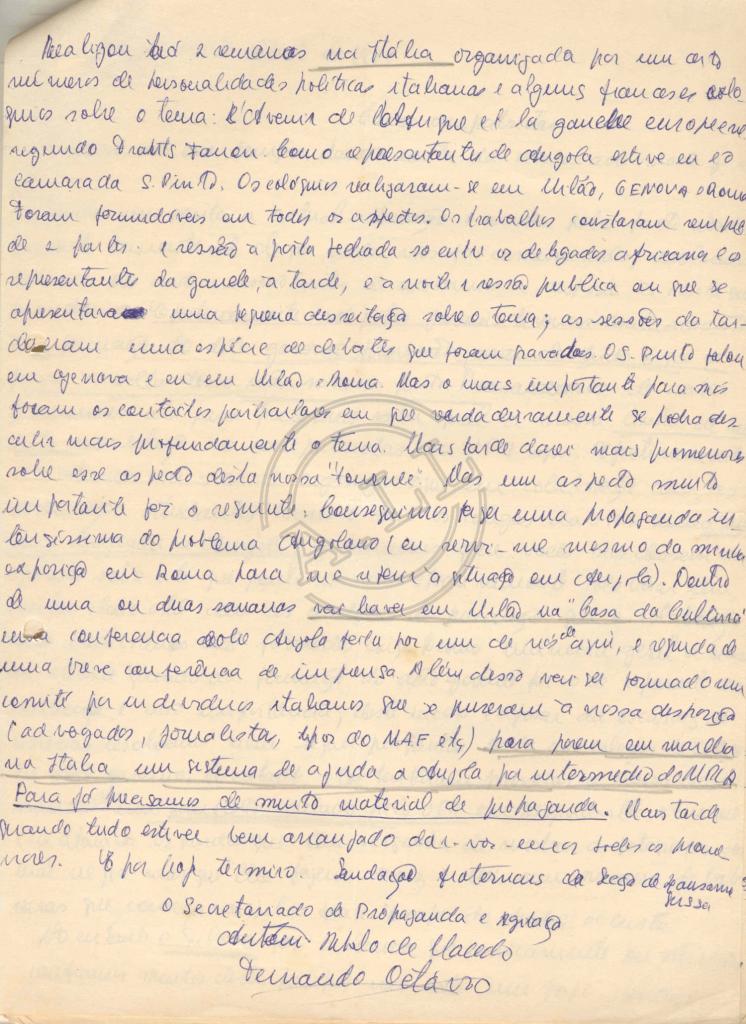 Realizou há 2 semanas na Itália organizada por um certo
número de personalidades políticas italianas e alguns franceses coló-
quios sobre o tema: L'Avenir de l'Afrique et la gauche européenne
segundo Frantz Fanon. Como representantes de Angola estive eu e o
camarada S. Pinto. Os colóquios realizaram-se em Milão, GENOVA e Roma
Foram formidáveis em todos os aspectos. Os trabalhos constaram sempre
de 2 partes. 1 sessão à porta fechada só entre os delegados africanos e os
representantes da gauche, à tarde, e à noite 1 sessão publica em que se
apresentava uma pequena dissertação sobre o tema; as sessões da tar-
de eram uma espécie de debates que foram gravados. O S. Pinto falou
em Genova e eu em Milão e Roma. Mas o mais importante para nós
foram os contactos particulares em que verdadeiramente se podia dis-
cutir mais profundamente o tema. Mais tarde darei mais promenores
sobre esse aspecto desta nossa "tournée". Mas um aspecto muito
importante foi o seguinte: Conseguimos fazer uma propaganda in-
tensíssima do problema Angolano (eu servi-me mesmo da minha
exposição em Roma para a situação em Angola). Dentro
de uma ou duas semanas vai haver em Milão na "Casa da Cultura"
uma conferencia sobre Angola feita por um de nós de aqui, e seguida de
uma breve conferência de imprensa. Além disso vai ser formado um
comité por individuos italianos que se puseram à nossa disposição
(advogados, jornalistas, tipos do MAF etc) para porem em marcha
na Italia um sistema de ajuda a Angola por intermedio do MPLA
Para já precisamos de muito material de propaganda. Mais tarde
quando tudo estiver bem arranjado dar-vos-emos todos os prome-
nores. E por hoje termino. Saudações fraternais da Secção de Lausanne
Suissa
O Secretariado de Propaganda e Agitação
António Pablo de Macedo
Fernando Octávio
ALL